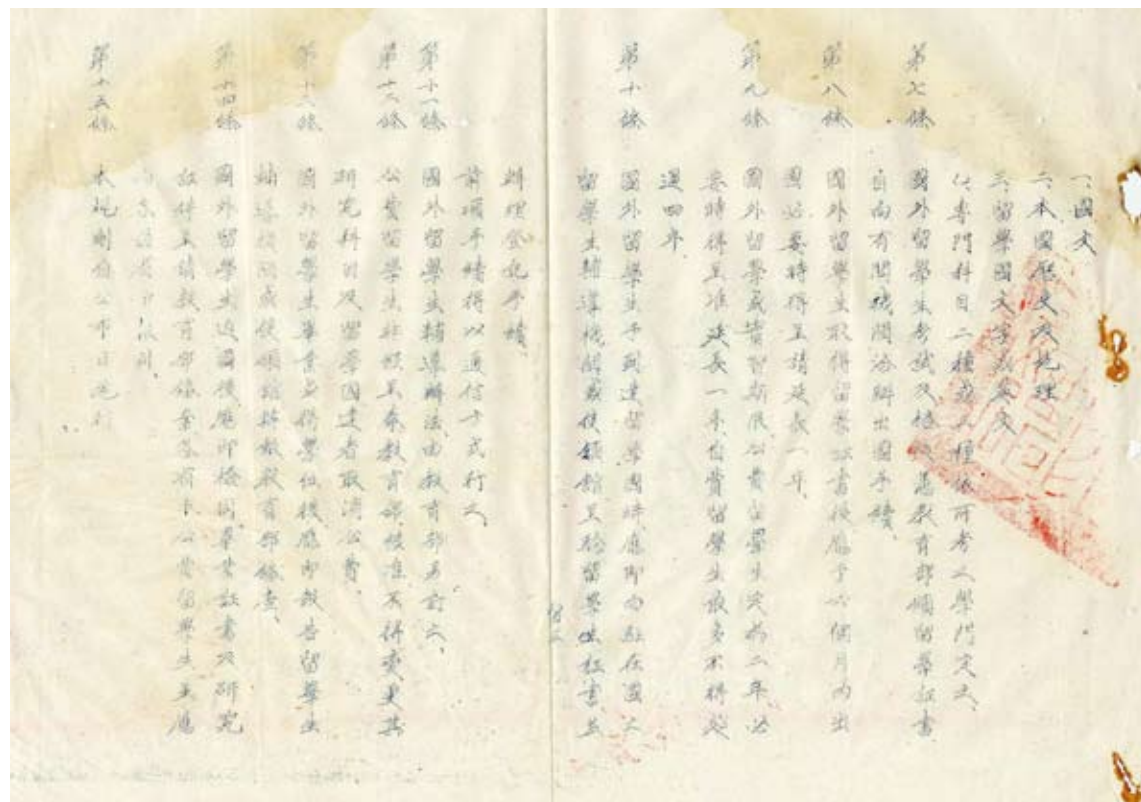 一、國文
二、本國歷史及地理
三、留學國文字或英文
四、專門科目二種或三種依所考之學門定之、
第七條 國外留學生考試及格後憑教育部頒留學証書
自向有關機關洽辦出國手續、
第八條 國外留學生取得留學証書後應于六個月內出
國必要時得呈請延長一年、
第九條 國外留學或實習期限公費留學生定為二年必
要時得呈准延長一年、自費留學生最多不得超
過四年
第十條 國外留學生于到達留學國時、應即向駐在國之
留學生輔導機關或使領館呈驗留學生証書、並
辦理登記手續、
前項手續得以通信方式行之、
第十一條 國外留學生輔導辦法由教育部另訂之、
第十二條 公費留學生非經呈奉教育部核准不得變更其
研究科目及留學國違者取消公費、
第十三條 國外留學生畢業並得學位後應即報告留學生
輔導機關或使領館轉報教育部備查、
第十四條 國外留學生返國後應即檢同畢業証書及研究
証件呈請教育部備案公費留學生並應
本規則自公布日施行
第十五條